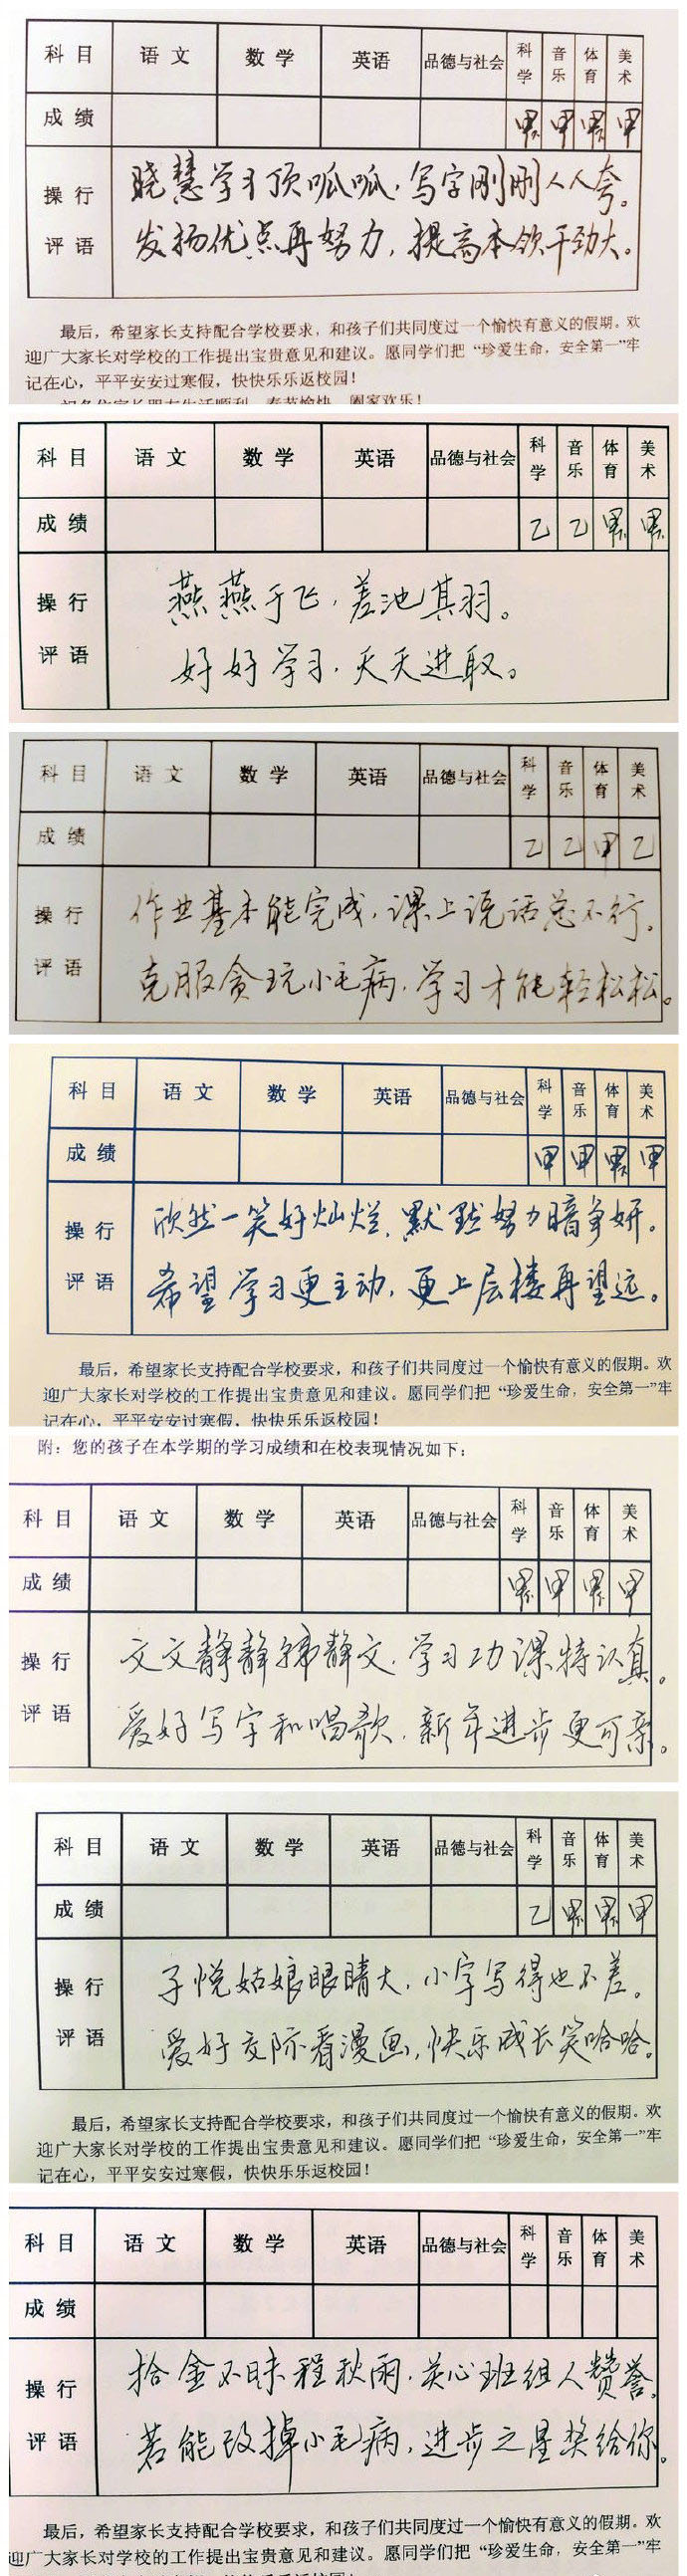 科目 语文 数学 英语 品德与社会 科学 音乐 体育 美术
成绩 甲 甲
操行评语
晓慧学习顶呱呱，写字刚刚人人夸。
发扬优点再努力，提高本领干劲大。
最后，希望家长支持配合学校要求，和孩子们共同度过一个愉快有意义的假期。欢
迎广大家长对学校的工作提出宝贵意见和建议。愿同学们把“珍爱生命，安全第一”牢
记在心，平平安安过寒假，快快乐乐返校园！
科目 语文 数学 英语 品德与社会 科学 音乐 体育 美术
成绩 乙 乙
操行评语
燕燕于飞，差池其羽。
好好学习，天天进取。
科目 语文 数学 英语 品德与社会 科学 音乐 体育 美术
成绩 乙 乙 甲 乙
操行评语
作业基本能完成，课上说话总不行。
克服贪玩小毛病，学习才能轻松松。
科目 语文 数学 英语 品德与社会 科学 音乐 体育 美术
成绩 甲 甲 甲
操行评语
欣然一笑好灿烂，默默努力暗争妍。
希望学习更主动，更上层楼再望远。
最后，希望家长支持配合学校要求，和孩子们共同度过一个愉快有意义的假期。欢
迎广大家长对学校的工作提出宝贵意见和建议。愿同学们把“珍爱生命，安全第一”牢
记在心，平平安安过寒假，快快乐乐返校园！
附：您的孩子在本学期的学习成绩和在校表现情况如下：
科目 语文 数学 英语 品德与社会 科学 音乐 体育 美术
成绩 甲 甲
操行评语
文文静静 静文，学习功课特认真。
爱好写字和唱歌，新年进步更可亲。
科目 语文 数学 英语 品德与社会 科学 音乐 体育 美术
成绩 乙 甲
操行评语
子悦姑娘眼睛大，小字写得也不差。
爱好交际看漫画，快乐成长笑哈哈。
最后，希望家长支持配合学校要求，和孩子们共同度过一个愉快有意义的假期。欢
迎广大家长对学校的工作提出宝贵意见和建议。愿同学们把“珍爱生命，安全第一”牢
记在心，平平安安过寒假，快快乐乐返校园！
科目 语文 数学 英语 品德与社会 科学 音乐 体育 美术
成绩
操行评语
拾金不昧程秋雨，关心班组人赞誉。
若能改掉小毛病，进步之星奖给你。
最后，希望家长支持配合学校要求，和孩子们共同度过一个愉快有意义的假期。欢
迎广大家长对学校的工作提出宝贵意见和建议。愿同学们把“珍爱生命，安全第一”牢